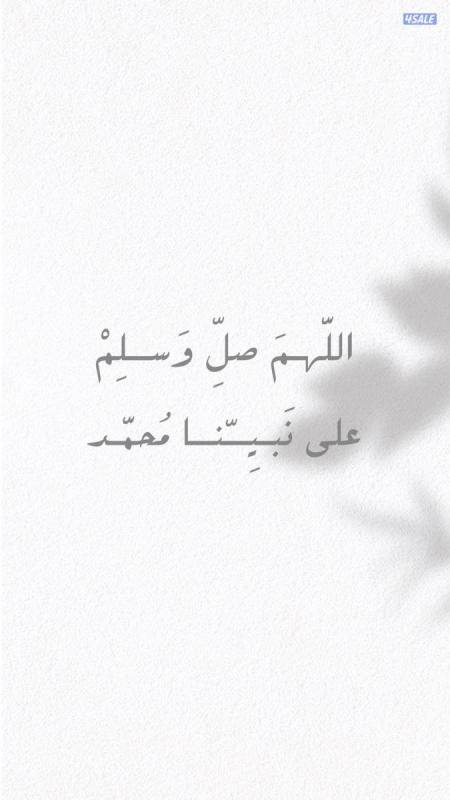 4SALE
اللّهمَ صلِّ وَسلِمْ
على نَبيِّنا مُحمّد